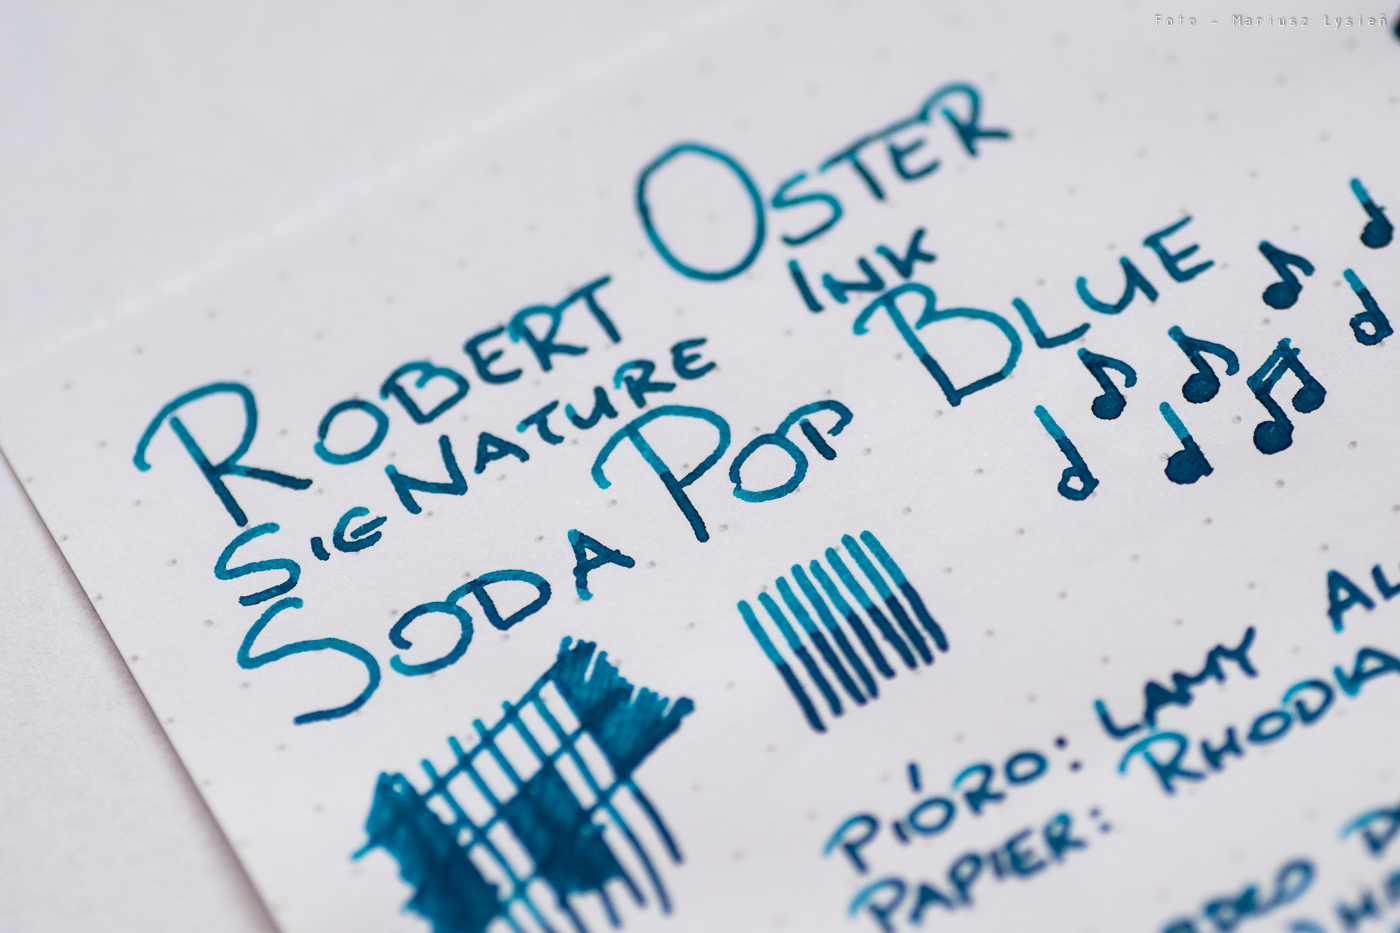 Foto - Mariusz Łysień
ROBERT OSTER
SIGNATURE INK
SODA POP BLUE
PIÓRO: LAMY AL
PAPIER: RHODIA